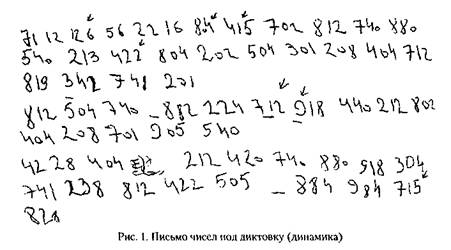 71 12 126 56 22 16 84 415 702 812 740 880
540 213 422 804 202 504 301 208 404 712
819 342 741 201
812 504 740 – 882 224 712 – 918 440 212 802
404 208 701 905 540
42 28 404 212 420 740 880 918 304
741 238 812 422 505 – 884 984 715
828
Рис. 1. Письмо чисел под диктовку (динамика)